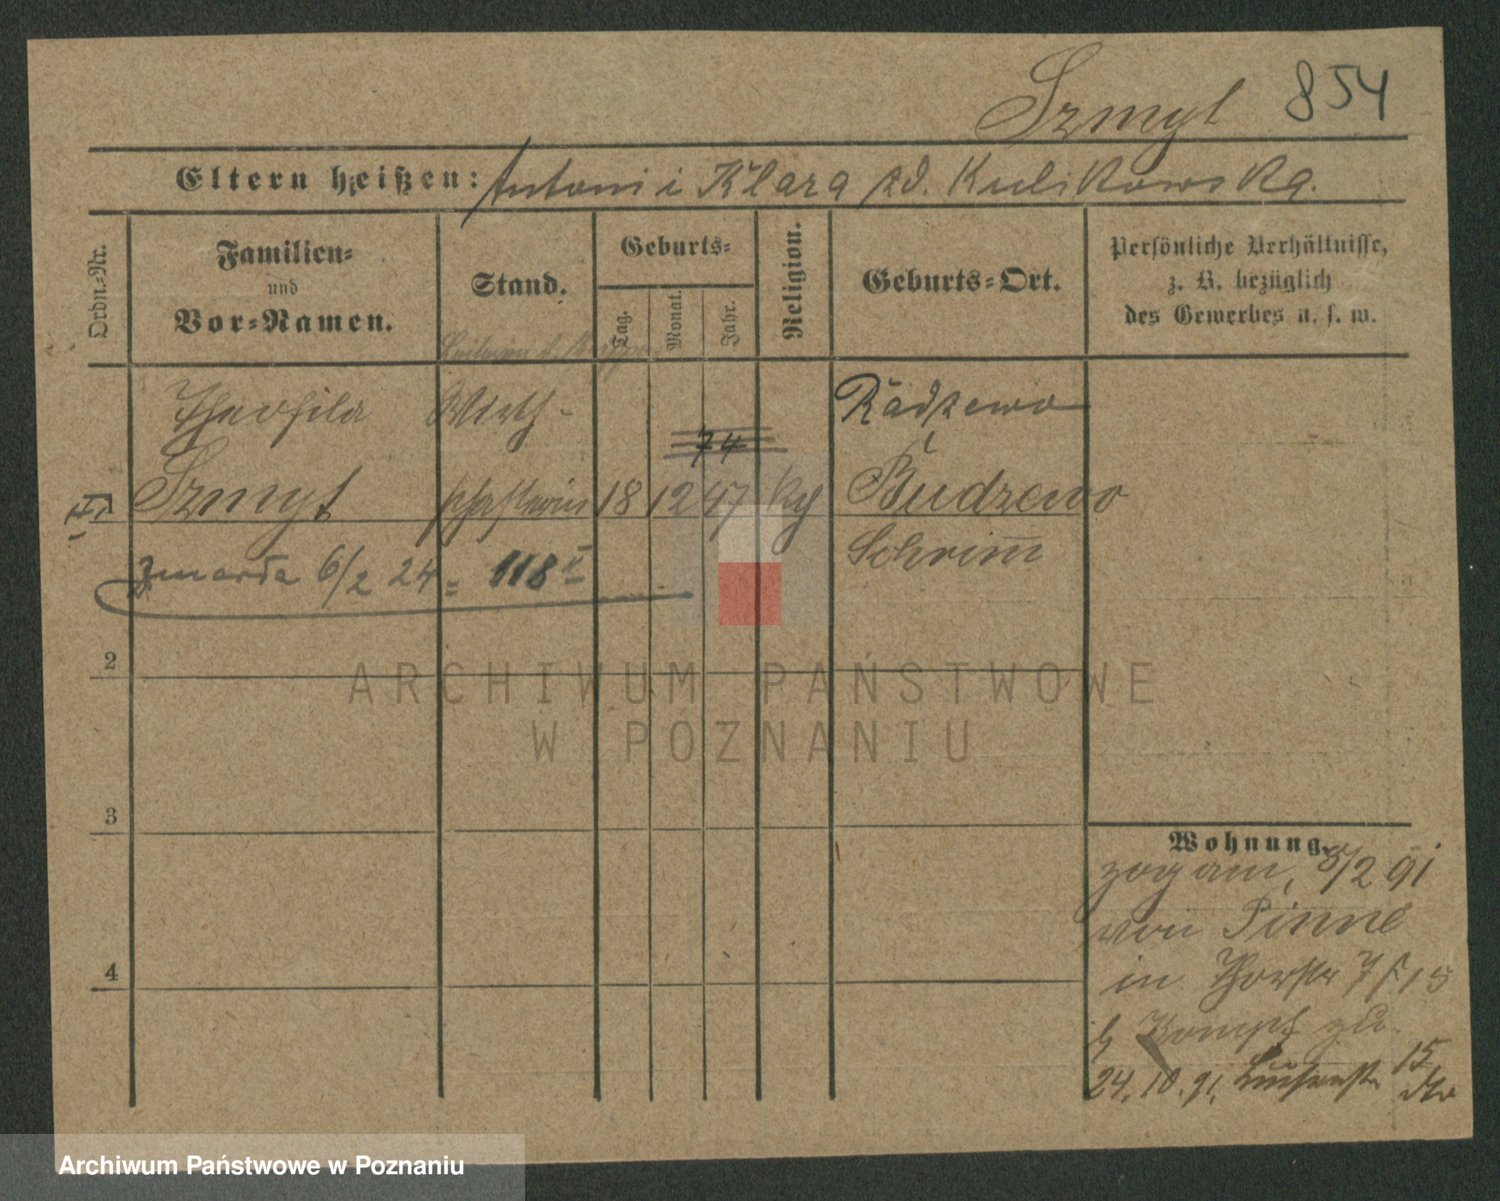 Szmyt 854
Eltern heißen: Antoni i Klara zd. Kulikowska.
Ordn.-Nr.
Familien-
und
Vor-Namen.
Stand.
Geburts-
Tag.
Monat.
Jahr.
Religion.
Geburts-Ort.
Persönliche Verhältnisse,
z. B. bezüglich
des Gewerbes u. s. w.
Theofila Wirth- Radzewo
74
Szmyt schafterin 18 12 47 Budzewo
Schrimm
zmarła 6/2 24 = 118 II
2
ARCHIWUM PAŃSTWOWE
W POZNANIU
3
Wohnung.
zog am, 5/2 91
von Pinne
in 7 15
4
zu
24. 10. 91. 15
Archiwum Państwowe w Poznaniu